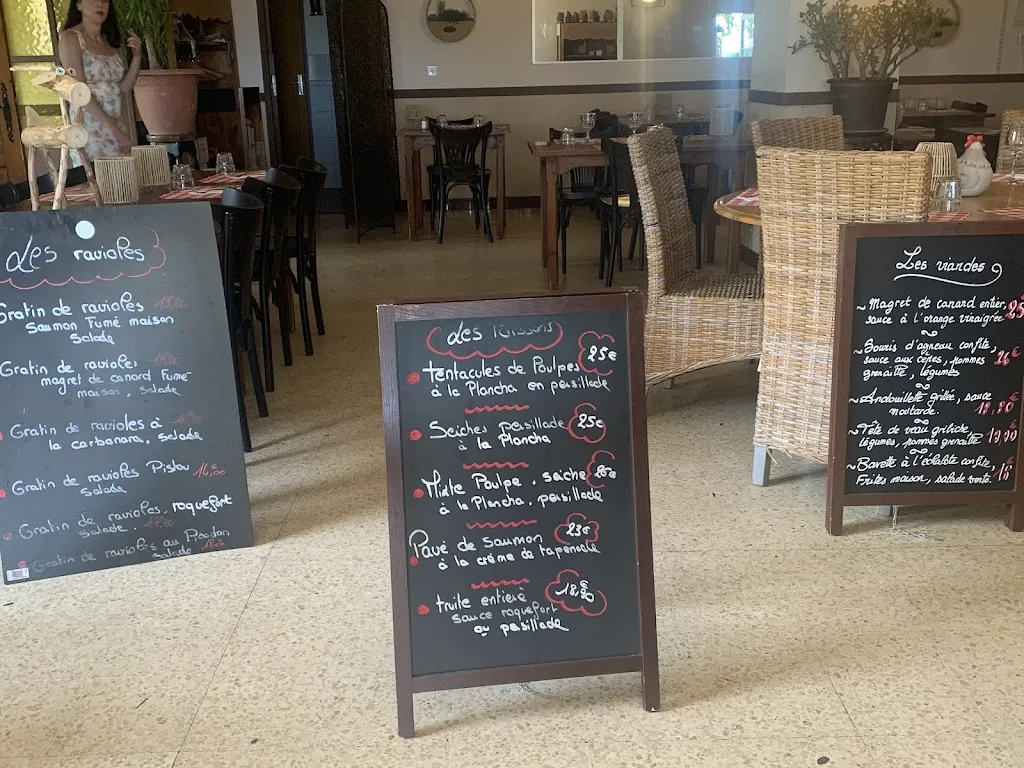 des ravioles
Gratin de ravioles
Saumon Fumé maison
Salade
Gratin de ravioles
magret de canard Fumé
maison, Salade
Gratin de ravioles à
la carbonara, salade
Gratin de ravioles Pistou 14,00
Salade
Gratin de ravioles, roquefort
salade. 17,80
Gratin de ravioles au
salade
des Poissons
tentacules de Poulpes 25€
à la Plancha en persillade
Seiches persillade 25€
à la Plancha
Mixte Poulpe, seiche
à la Plancha, persillade
Pavé de saumon 23€
à la crème de tapenade
truite entière 18,90
sauce roquefort
ou persillade
Les viandes
~ Magret de canard entier,
sauce à l'orange vinaigrée
~ Souris d'agneau confite,
sauce aux cèpes, pommes
grenaille, légumes
~ Andouillette grillée, sauce
moutarde. 18,80€
~ Tête de veau gribiche,
légumes, pommes grenaille
~ Bavette à l'échalote confite,
Frites maison, salade verte.